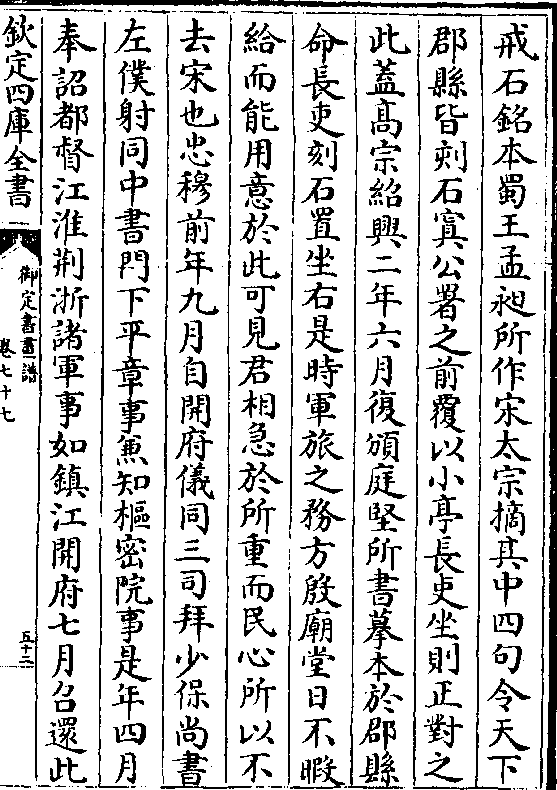 戒石銘本蜀王孟昶所作宋太宗摘其中四句令天下
郡縣皆刻石寘公署之前覆以小亭長吏坐則正對之
此蓋髙宗紹興二年六月復頒庭堅所書摹本於郡縣
命長吏刻石置坐右是時軍旅之務方殷廟堂日不暇
給而能用意於此可見君相急於所重而民心所以不
去宋也忠穆前年九月自開府儀同三司拜少保尚書
左僕射同中書門下平章事兼知樞密院事是年四月
奉詔都督江淮荆浙諸軍事如鎮江開府七月召還此
欽定四庫全書
御定書畫譜
卷七十七
五十二